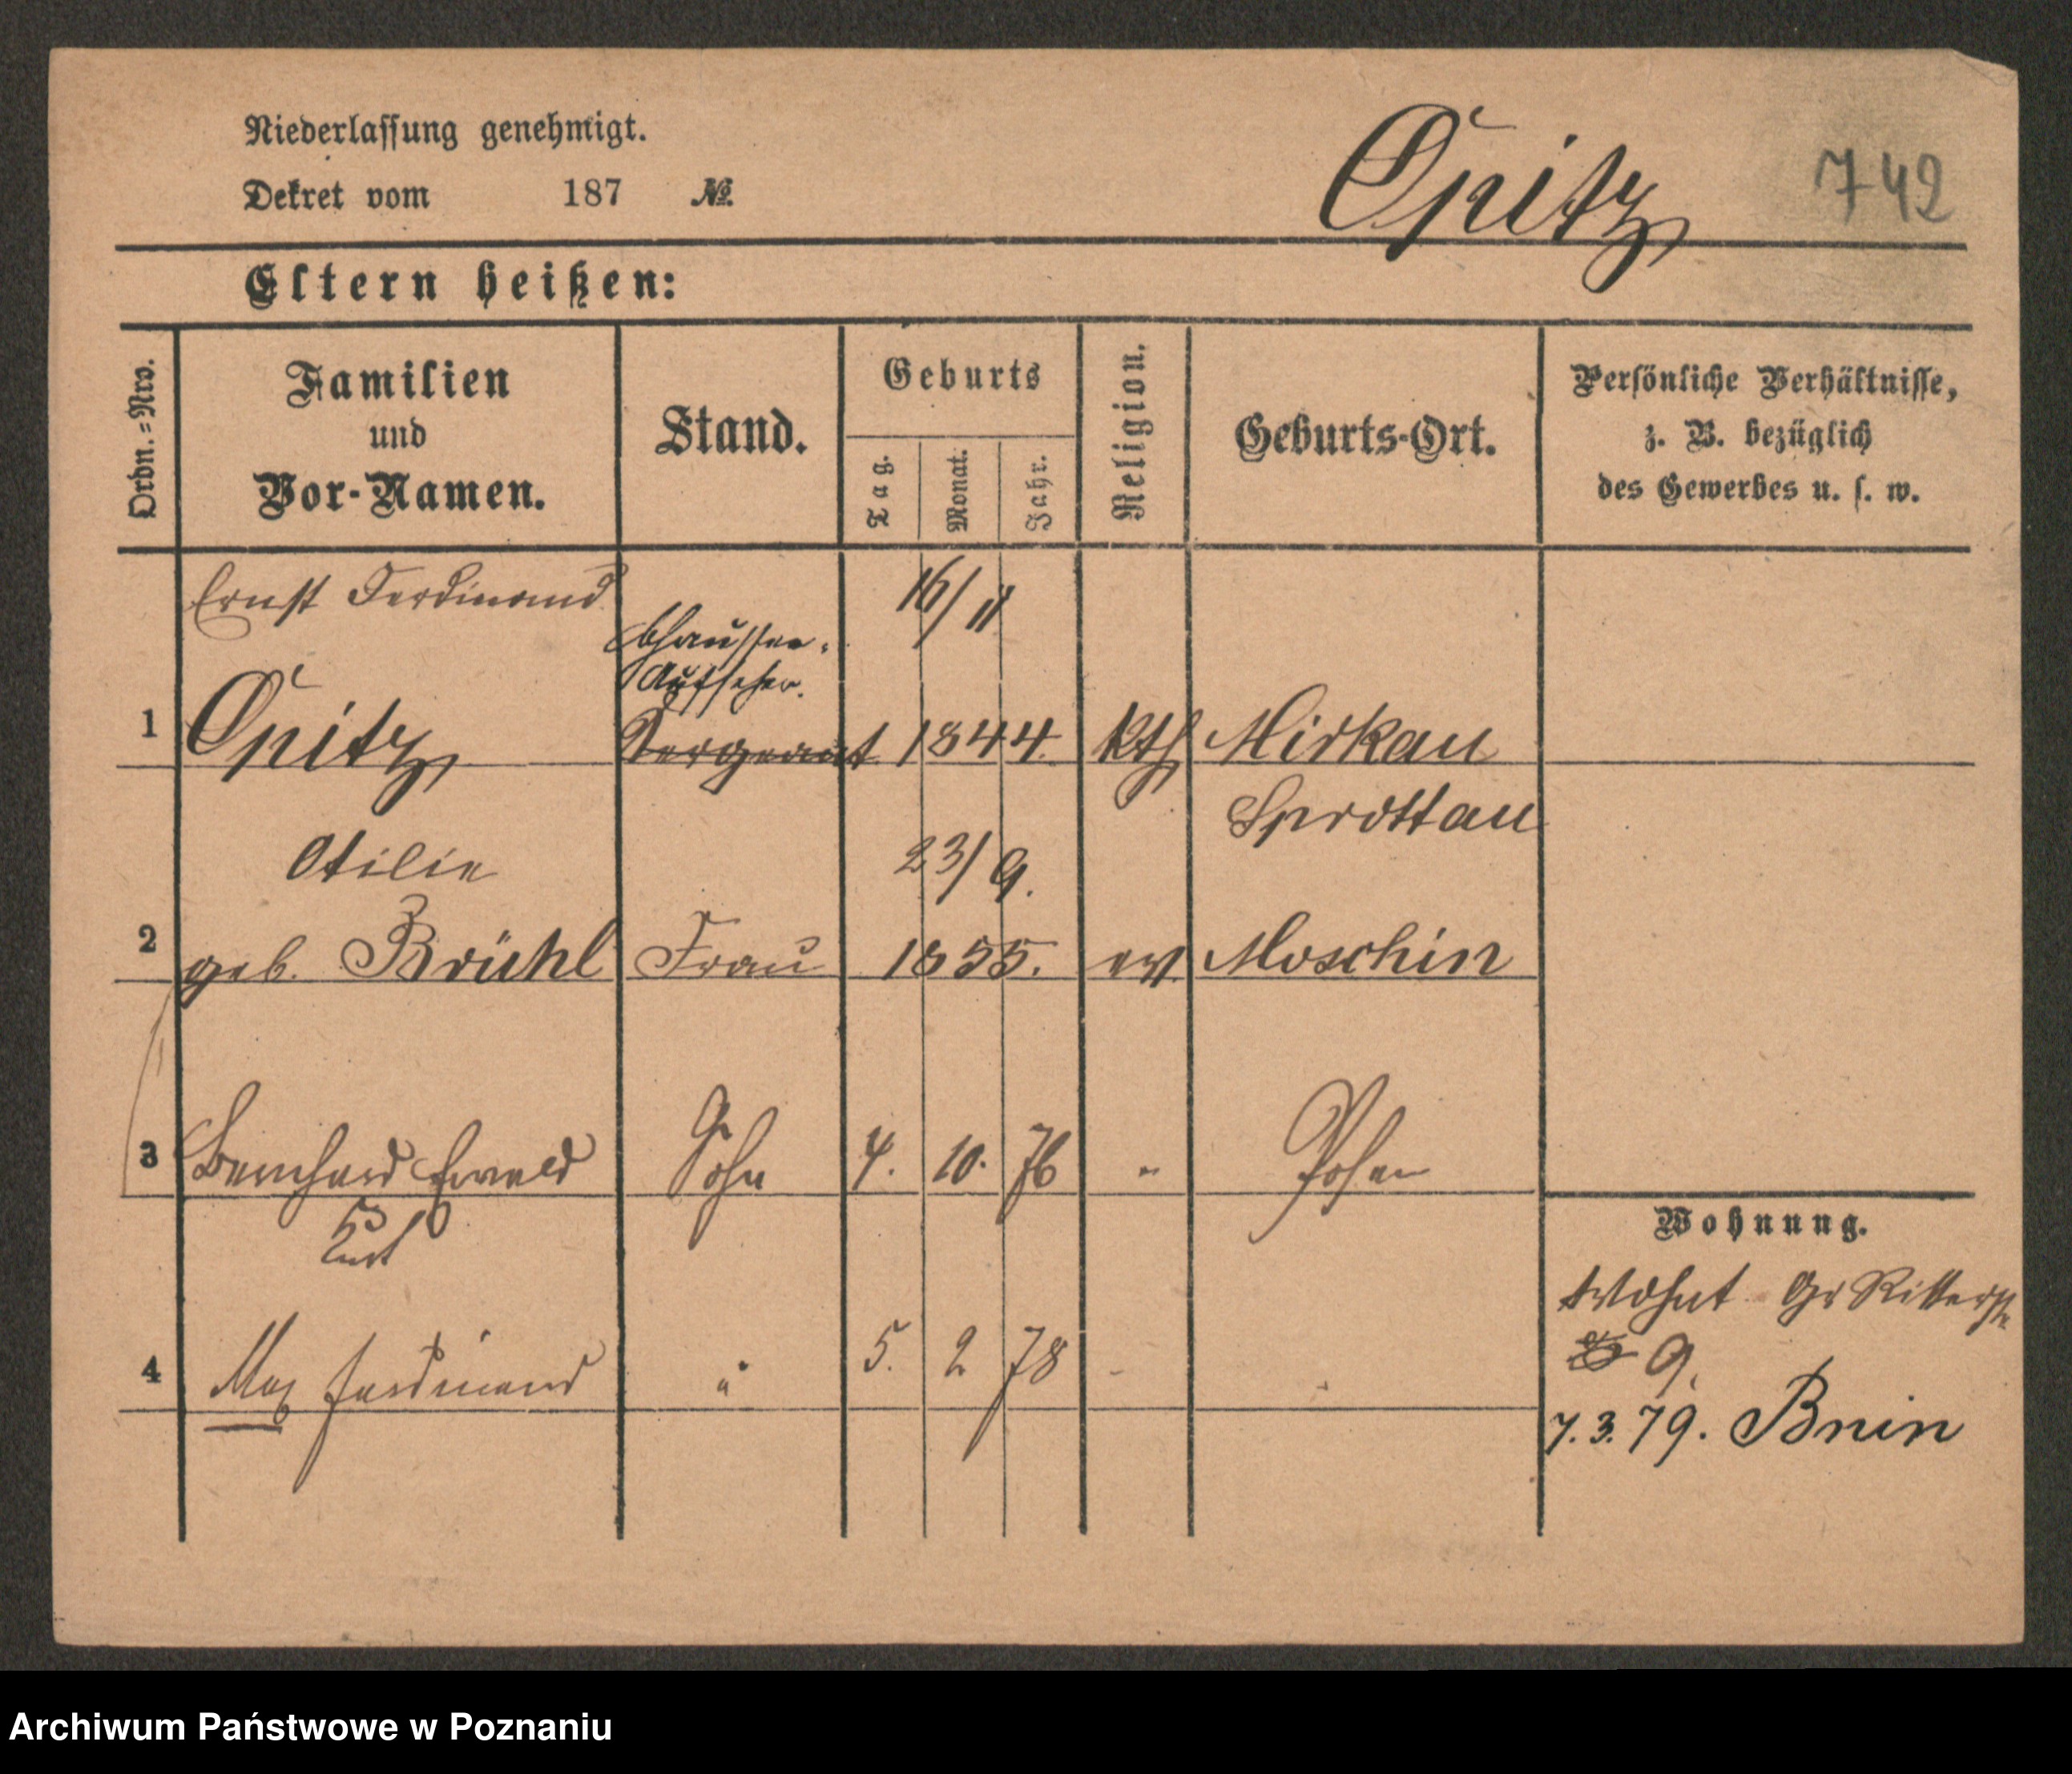 Niederlassung genehmigt.
Dekret vom 187 No.
Opitz 742
Eltern heißen:
Ordn.=Nro.
Familien
und
Vor-Namen.
Stand.
Geburts
Tag.
Monat.
Jahr.
Religion.
Geburts-Ort.
Persönliche Verhältnisse,
z. B. bezüglich
des Gewerbes u. s. w.
Ernst Ferdinand 16/11
Chaussee-
Aufseher.
1 Opitz Sergeant 1844. kth Mirkau
Sprottau
Otilie 23/9.
2 geb. Brühl Frau 1855. ev. Moschin
3 Bernhard Ewald Sohn 4. 10. 76 " Posen
Kurt
4 Max Ferdinand " 5. 2 78
Wohnung.
Wohnt Gr Ritterstr
9.
7.3.79. Bnin
Archiwum Państwowe w Poznaniu